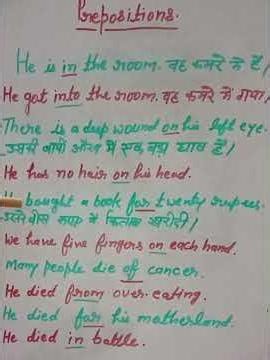 Prepositions.
He is in the room. वह कमरे में है।
He got into the room. वह कमरे में गया।
There is a deep wound on his left eye.
उसकी बायीं आँख में एक बड़ा घाव है।
He has no hair on his head.
bought a book for twenty rupees.
उसने बीस रुपए में किताब खरीदी।
We have five fingers on each hand.
Many people die of cancer.
He died from over-eating.
He died for his motherland.
He died in battle.